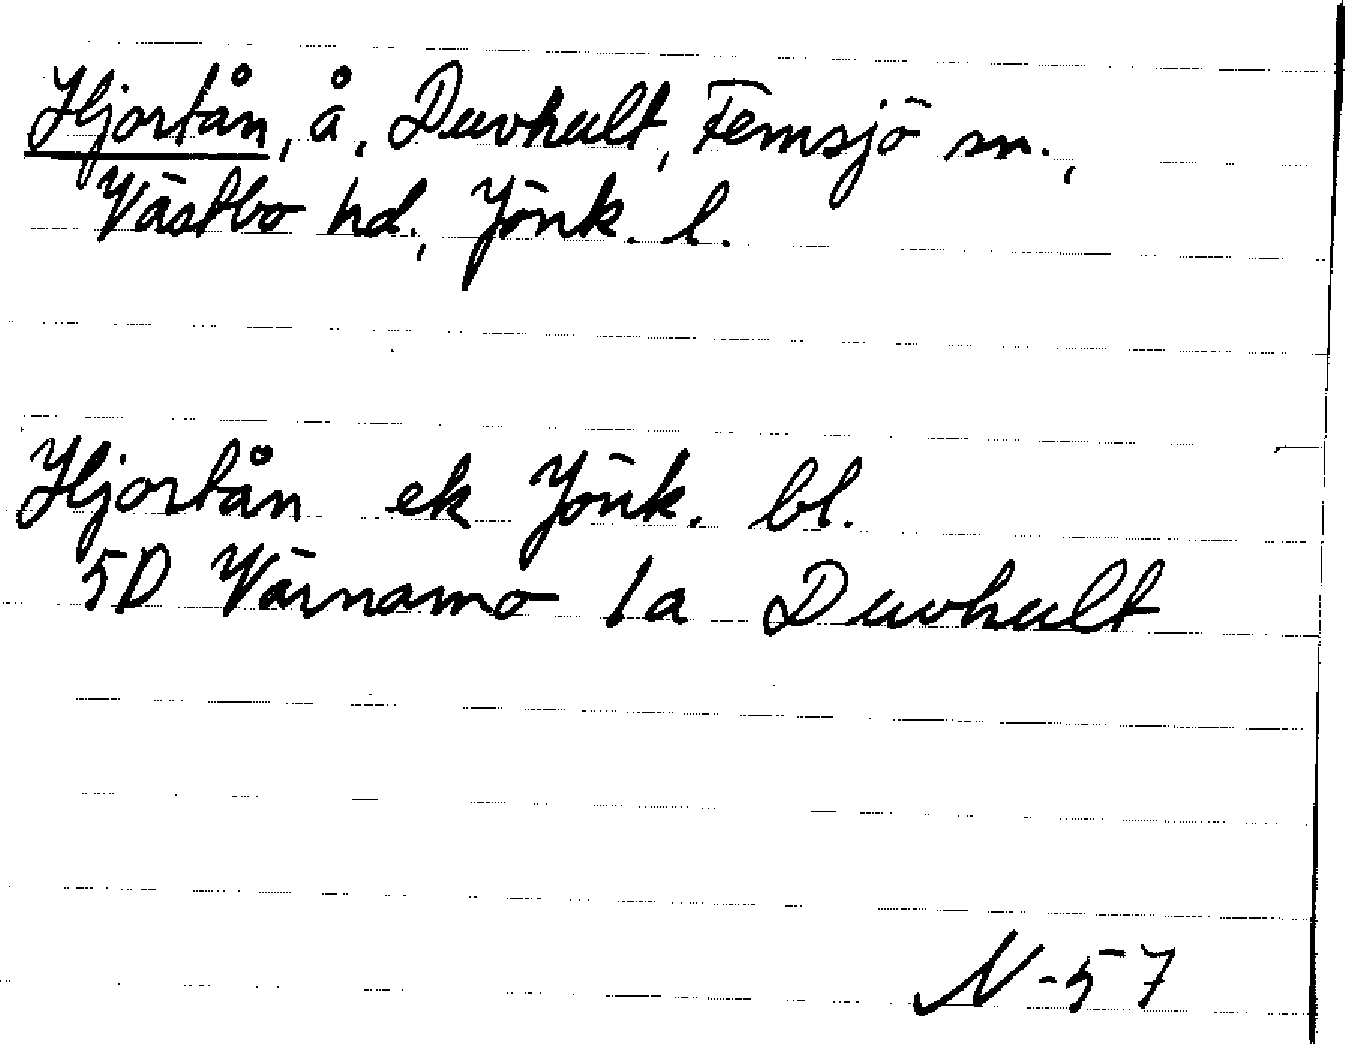 Hjortån, å, Duvhult, Femsjö sn.,
Västbo hd., Jönk. l.
Hjortån ek Jönk. bl.
5D Värnamo 1a Duvhult
N-57